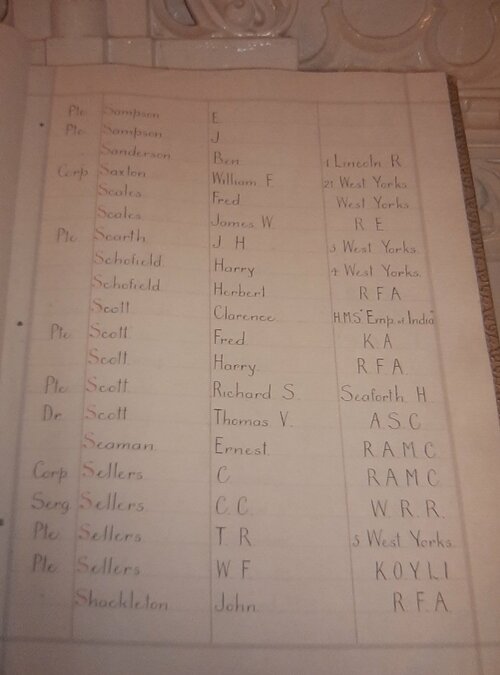 Pte Sampson E.
Pte Sampson J.
Sanderson Ben 1 Lincoln R
Corp Saxton William F. 21 West Yorks
Scales Fred West Yorks
Scales James W. R E
Pte Scarth J H 5 West Yorks.
Schofield Harry 4 West Yorks.
Schofield Herbert R F A
Scott Clarence H.M.S "Emp. of India"
Pte Scott Fred K.A
Scott Harry. R.F.A.
Pte Scott Richard S. Seaforth H.
Dr Scott Thomas V. A.S.C
Seaman. Ernest. R A M C
Corp Sellers C R A M C
Serg Sellers C. C. W. R. R.
Pte Sellers T. R 5 West Yorks.
Pte Sellers W F K O Y L I
Shackleton John R. F. A.